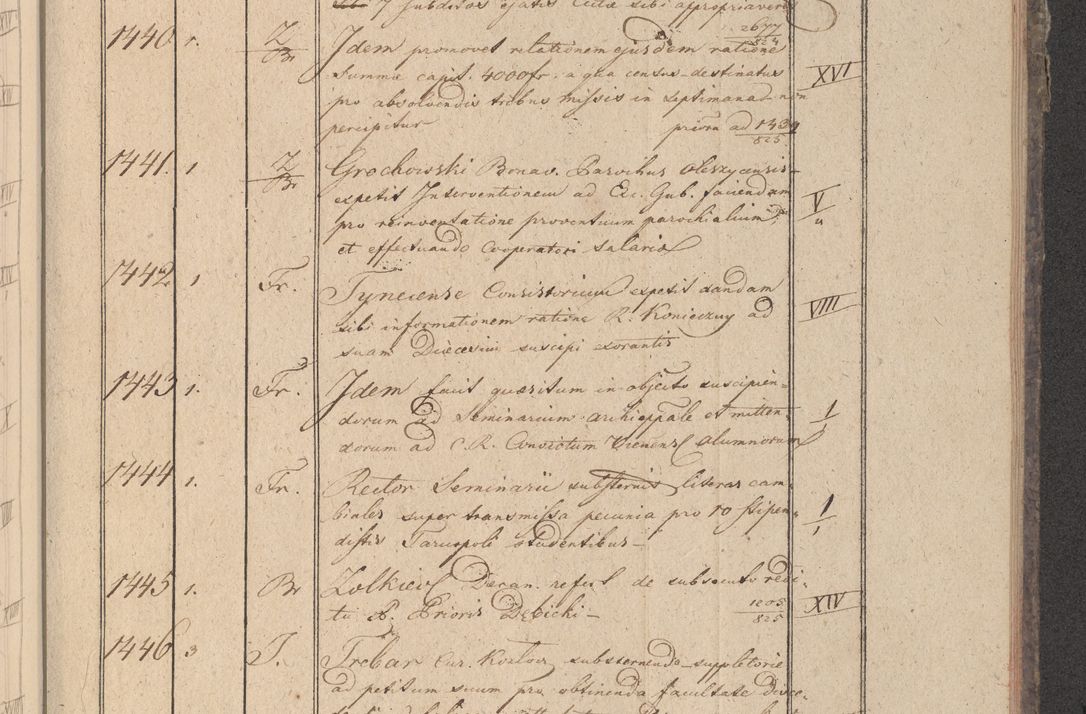 7 subditos ejatis Cutae sibi appropriavere
2677
824
1440 r. Z Idem promovet relationem ejusdem ratione
Br
Summae capit. 4000 fr. a qua census destinatus XVI
pro absolvendis tribus missis in septimana non
percipitur priora ad 1439
825
1441. 1 Z Grochowski Bonav. Parochus Oleszycensis
Br
expetit Interventionem ad Ex. Gub. faciendam V
pro reinventatione proventuum parochialium,
et effectuando Cooperatori salario
1442 1 Fr. Tyneciense Consistorium expetit dandam
sibi informationem ratione R. Konieczny ad VIII
suam Dioecesim suscipi exorantis
1443 1. Fr. Idem facit quaesitum in objecto suscipien-
dorum ad Seminarium archieppale et mitten- 1
dorum ad C. R. Convictum Vienense alumnorum
1444 1. Fr. Rector Seminarii substernit literas cam-
biales super transmissa pecunia pro 10 stipen- 1
distis Tarnopoli studentibus-
1445 1. Br Zolkiew Decan. refert de subsecuto redi-
1205
825
tu P. Prioris Dębicki- XIV
1446 3 J. Trebar Cur. substernendo suppletorie
ad petitum suum pro obtinenda facultate